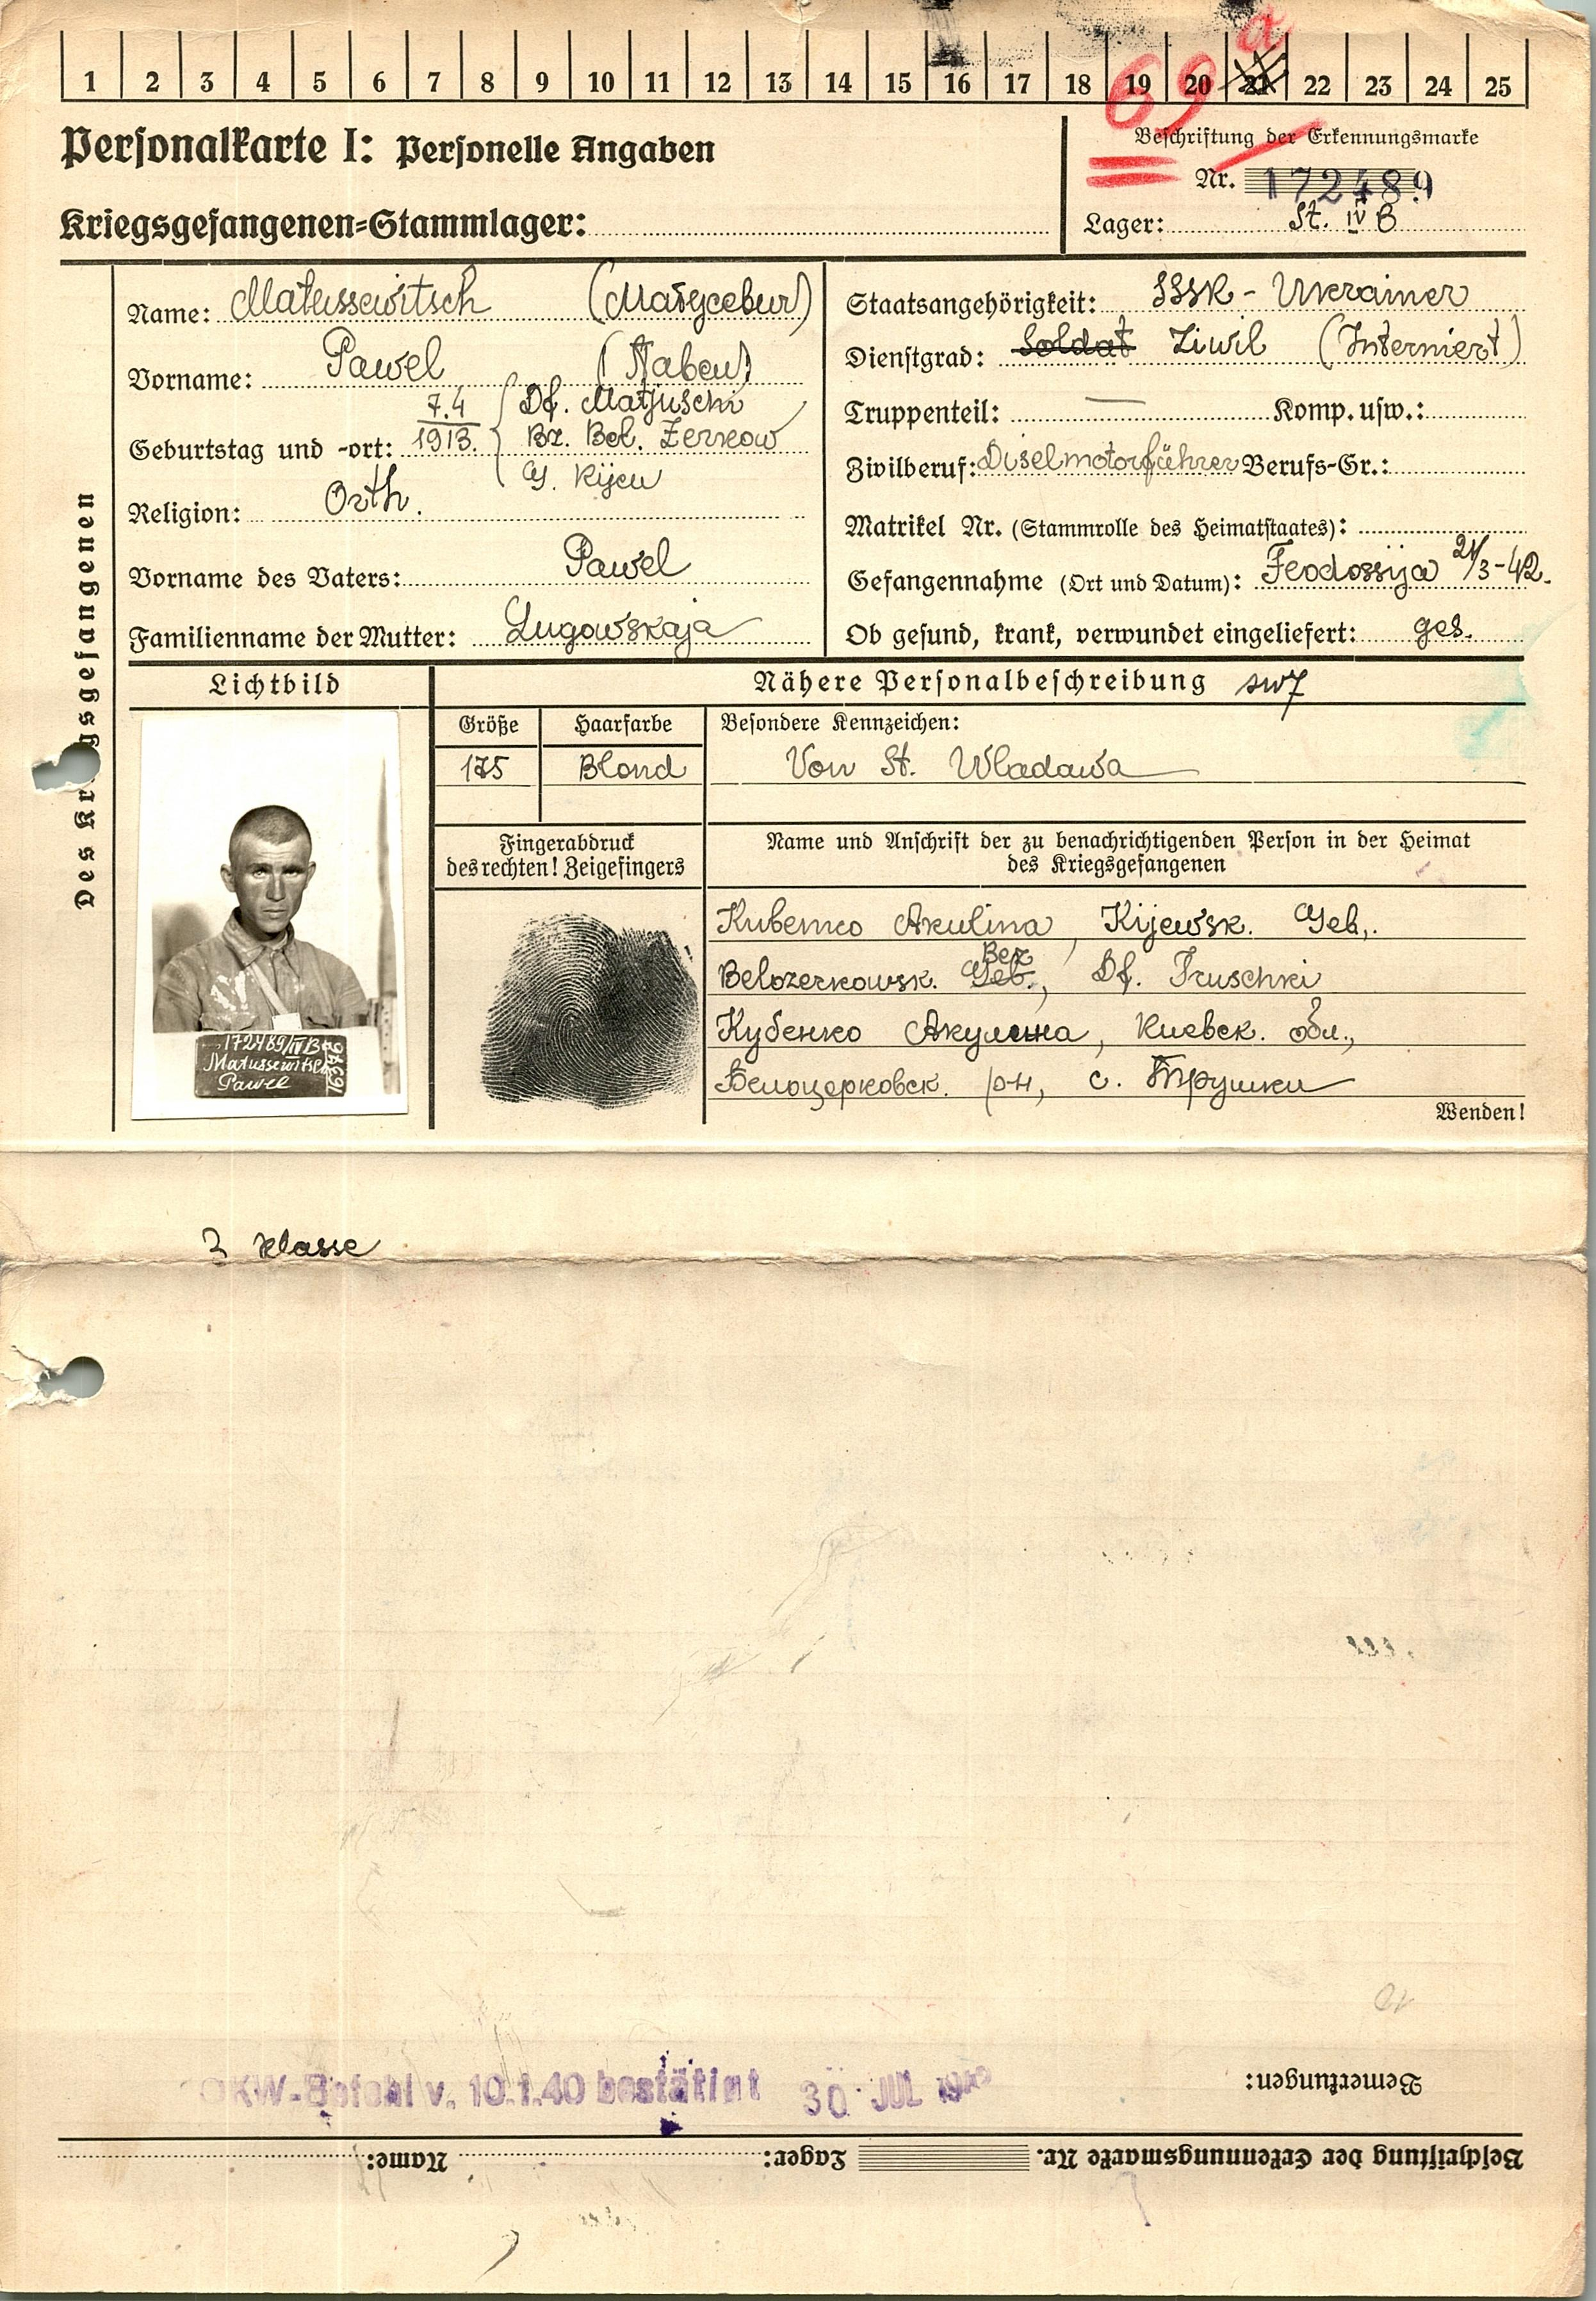 1 2 3 4 5 6 7 8 9 10 11 12 13 14 15 16 17 18 19 20 21 22 23 24 25
69 a
Personalkarte I: Personelle Angaben
Beschriftung der Erkennungsmarke
Nr. 172489
Kriegsgefangenen-Stammlager:
Lager: St. IV B
Des Kr gsgefangenen
Name: Matussewitsch (Матусевич)
Vorname: Pawel (Павел)
Geburtstag und -ort: 7.4 1913. Df. Matjuschi
Bz. Bel. Zerkow
G. Kijew
Religion: Orth.
Vorname des Vaters: Pawel
Familienname der Mutter: Lugowskaja
Staatsangehörigkeit: SSSR - Ukrainer
Dienstgrad: Soldat Ziwil (Interniert)
Truppenteil: — Komp. usw.:
Zivilberuf: Diselmotorführer Berufs-Gr.:
Matrikel Nr. (Stammrolle des Heimatstaates):
Gefangennahme (Ort und Datum): Feodossija 21/3-42.
Ob gesund, krank, verwundet eingeliefert: ges.
Lichtbild
Nähere Personalbeschreibung
Größe Haarfarbe Besondere Kennzeichen:
175 Blond Von St. Wladawa
Fingerabdruck
des rechten! Zeigefingers
Name und Anschrift der zu benachrichtigenden Person in der Heimat
des Kriegsgefangenen
Kubenko Akulina, Kijewsk. Geb,.
Belozerkowsk. Geb., Bez Df. Truschki
Кубенко Акулина, Киевск. обл.,
Белоцерковск. р-н, с. Трушки
Wenden!
172489/IV B
Matussewitsch
Pawel
16376
3 Klasse
Bemerkungen:
OKW-Befehl v. 10.1.40 bestätigt 30 JUL 1943
Beschriftung der Erkennungsmarke Nr. Lager: Name: